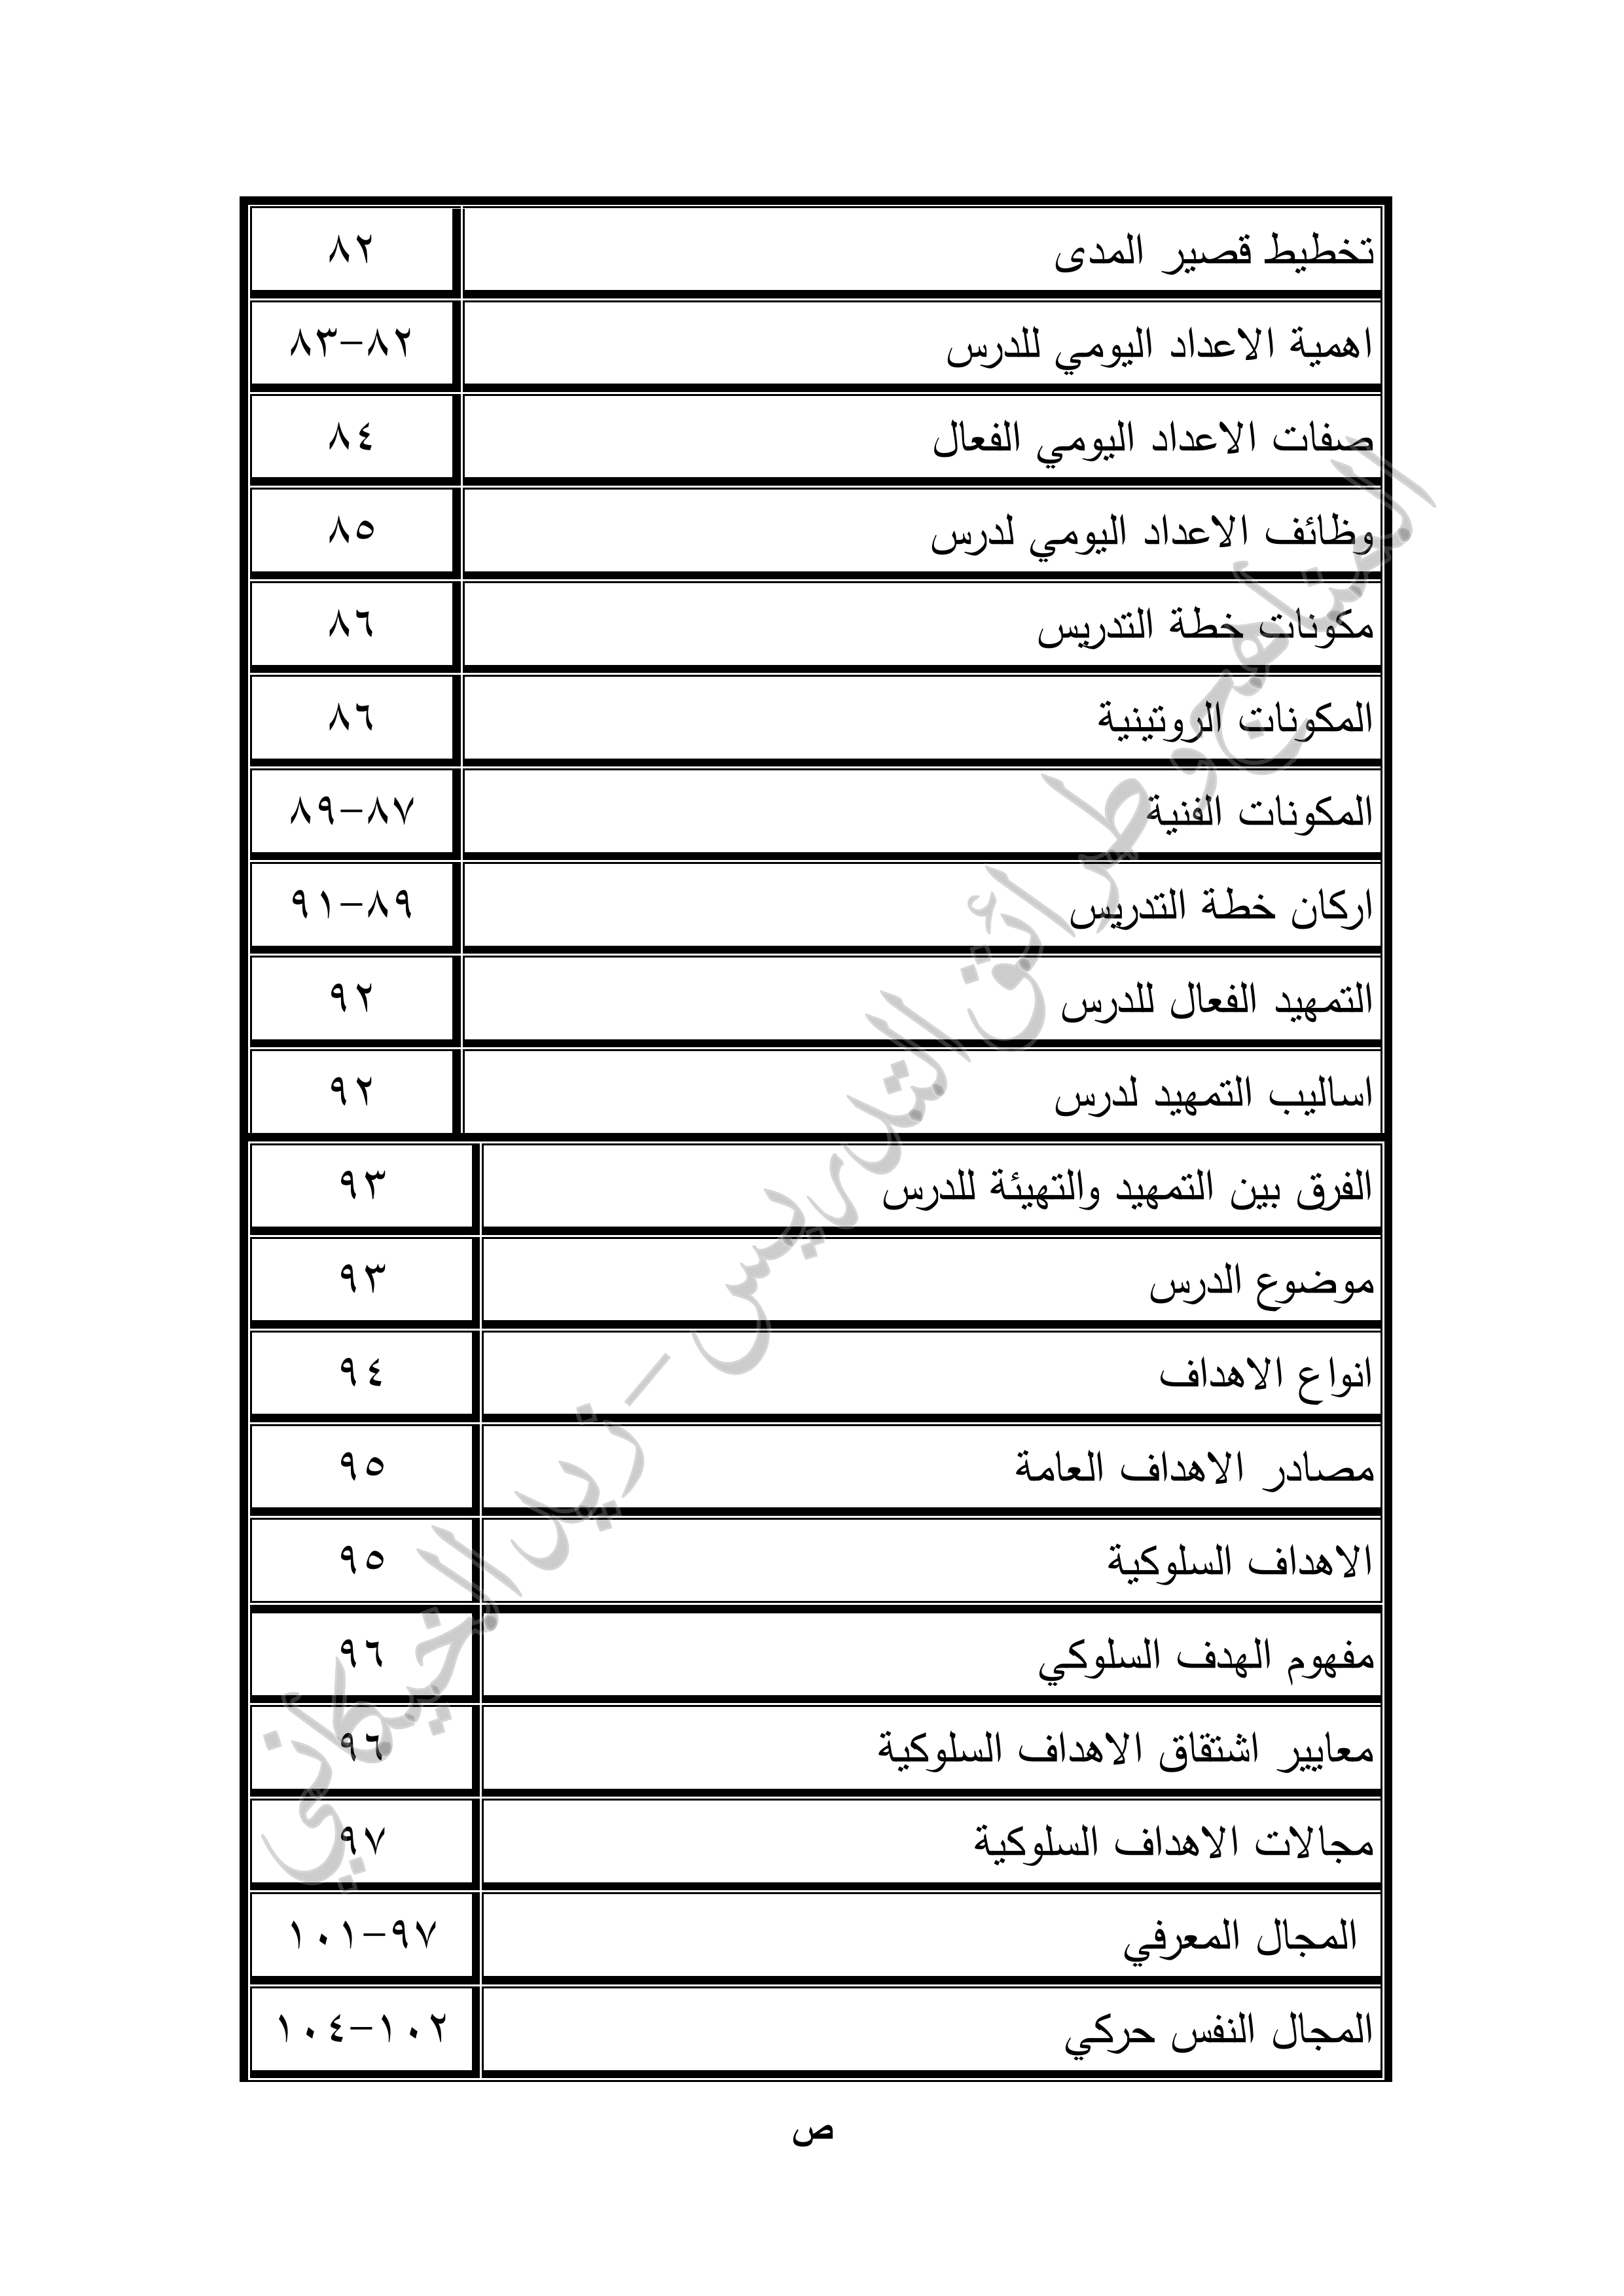 تخطيط قصير المدى ٨٢
اهمية الاعداد اليومي للدرس ٨٢-٨٣
صفات الاعداد اليومي الفعال ٨٤
وظائف الاعداد اليومي لدرس ٨٥
مكونات خطة التدريس ٨٦
المكونات الروتينية ٨٦
المكونات الفنية ٨٧-٨٩
اركان خطة التدريس ٨٩-٩١
التمهيد الفعال للدرس ٩٢
اساليب التمهيد لدرس ٩٢
الفرق بين التمهيد والتهيئة للدرس ٩٣
موضوع الدرس ٩٣
انواع الاهداف ٩٤
مصادر الاهداف العامة ٩٥
الاهداف السلوكية ٩٥
مفهوم الهدف السلوكي ٩٦
معايير اشتقاق الاهداف السلوكية ٩٦
مجالات الاهداف السلوكية ٩٧
المجال المعرفي ٩٧-١٠١
المجال النفس حركي ١٠٢-١٠٤
ص
المناهج و طرائق التدريس - زيد الخيكاني